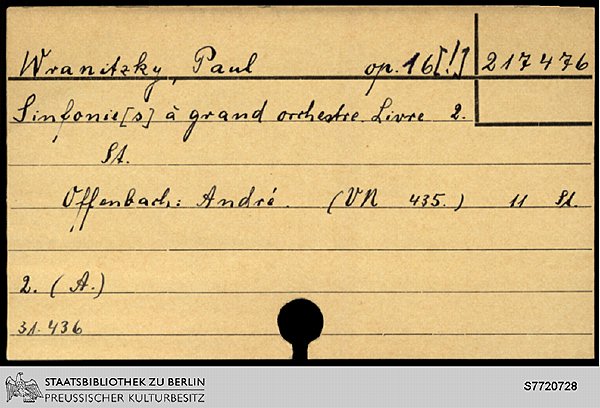 Wranitzky, Paul op. 16[!] 217476
Sinfonie[s] à grand orchestre. Livre 2.
St.
Offenbach: André. (VN 435.) 11 St.
2. (A.)
31.436
STAATSBIBLIOTHEK ZU BERLIN
PREUSSISCHER KULTURBESITZ
S7720728